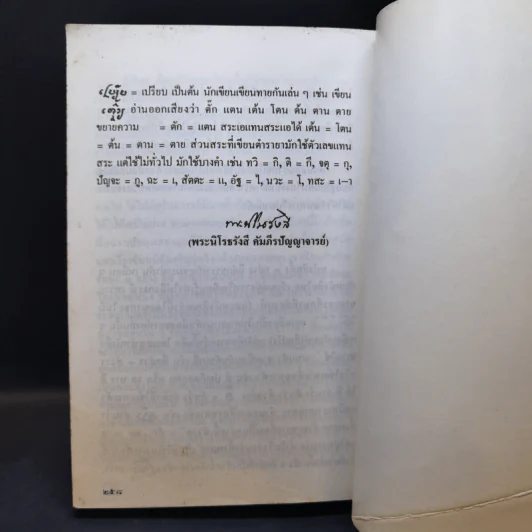 = เปรียบ เป็นต้น นักเขียนเขียนทายกันเล่น ๆ เช่น เขียน
อ่านออกเสียงว่า ตั๊ก แตน เต้น โตน ต้น ตาน ตาย
ขยายความ = ตัก = แตน สระเอแทนสระแอได้ เต้น = โตน
= ต้น = ตาน = ตาย ส่วนสระที่เขียนตำรายามักใช้ตัวเลขแทน
สระ แต่ใช้ไม่ทั่วไป มักใช้บางคำ เช่น ทวิ = กิ, ติ = กี, จตุ = กุ,
ปัญจะ = กู, ฉะ = เ, สัตตะ = แ, อัฐ = ไ, นวะ = โ, ทสะ = เ-า
(พระนิโรธรังสี คัมภีรปัญญาจารย์)